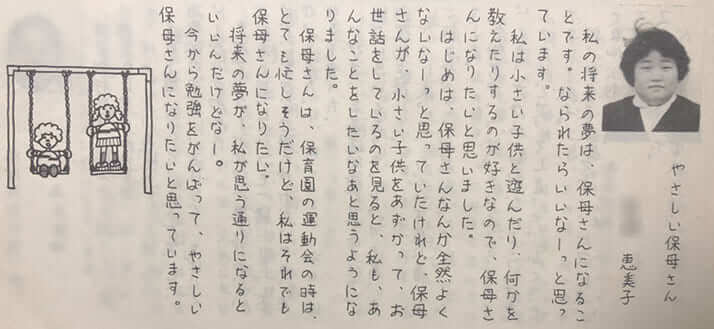 やさしい保母さん
恵美子
私の将来の夢は、保母さんになるこ
とです。なられたらいいなーっと思っ
ています。
私は小さい子供と遊んだり、何かを
教えたりするのが好きなので、保母さ
んになりたいと思いました。
はじめは、保母さんなんか全然よく
ないなーっと思っていたけれど、保母
さんが、小さい子供をあずかって、お
世話をしているのを見ると、私も、あ
んなことをしたいなあと思うようにな
りました。
保母さんは、保育園の運動会の時は、
とても忙しそうだけど、私はそれでも
保母さんになりたい。
将来の夢が、私が思う通りになると
いいんだけどなー。
今から勉強をがんばって、やさしい
保母さんになりたいと思っています。